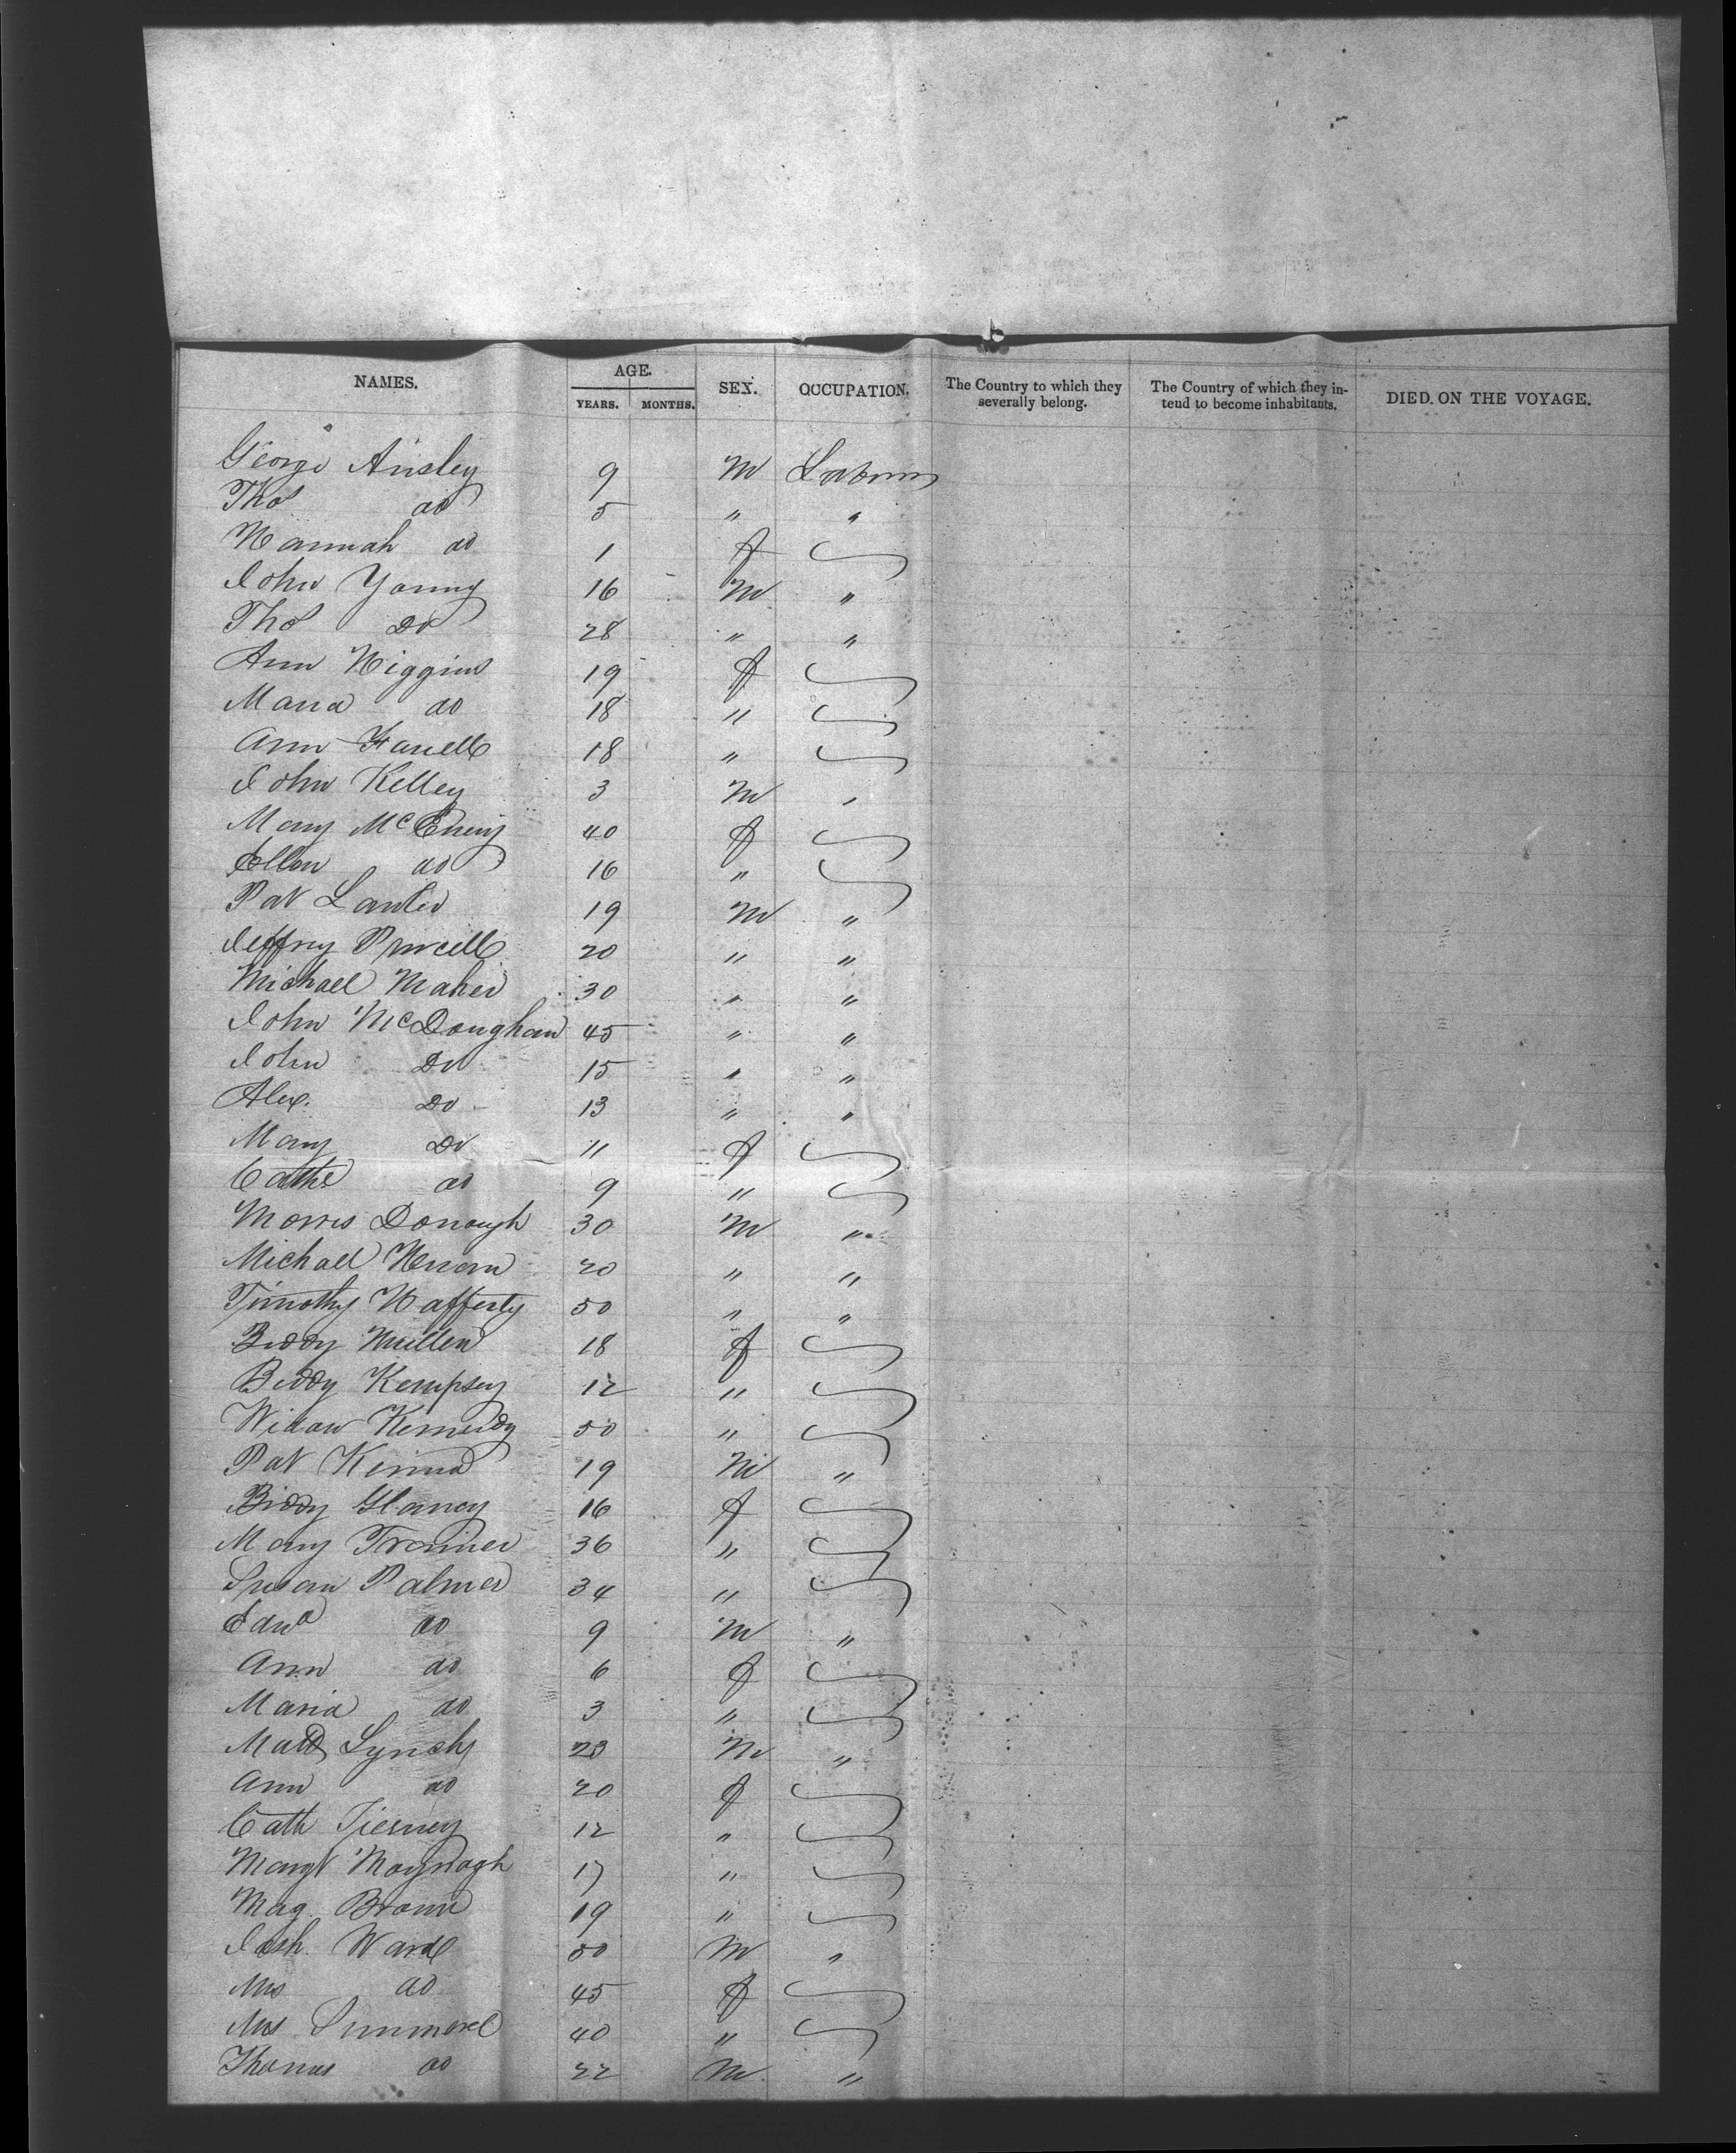 NAMES. AGE. YEARS. MONTHS. SEX. OCCUPATION. The Country to which they severally belong. The Country of which they intend to become inhabitants. DIED ON THE VOYAGE.
George Ainsley 9 M Laborer
Thos do 5 " "
Hannah do 1 f
John Young 16 M "
Thos Do 28 " "
Ann Higgins 19 f
Maria do 18 "
Ann Farrell 18 "
John Kelley 3 M "
Mary McEneny 40 f
Ellen do 16 "
Pat Lawler 19 M "
Jeffrey Purcell 20 " "
Michael Maher 30 " "
John McDoughan 45 " "
John Do 15 " "
Alex. Do 13 " "
Mary Do 11 f
Cathe do 9 "
Morris Donough 30 M "
Michael 20 " "
Timothy Hafferty 50 " "
Biddy Mullen 18 f
Biddy Kempsey 12 "
Widow Kennedy 50 "
Pat Kenna 19 M "
Biddy Glancy 16 f
Mary Trainer 36 "
Susan Palmer 34 "
Edwd do 9 M "
Ann do 6 f
Maria do 3 "
Lynch 23 M "
Ann do 20 f
Cath Tierney 12 "
Margt Moynagh 17 "
Mag. Brown 19 "
Josh. Ward 50 M "
Mrs do 45 f
Mrs 40 "
Thomas do 22 M "